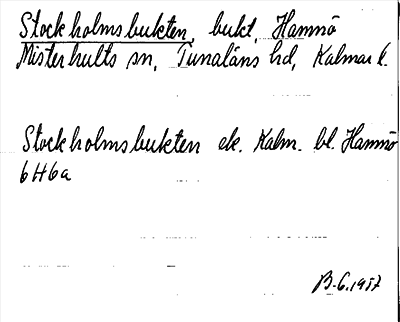 Stockholmsbukten, bukt, Hamnö
Misterhults sn, Tunaläns hd, Kalmar l.
Stockholmsbukten ek. Kalm. bl. Hamnö
6H6a
B-G. 1957